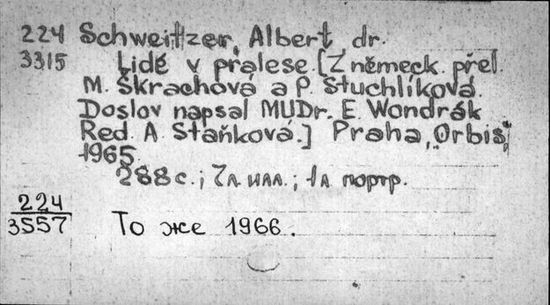 224 Schweitzer, Albert, dr.
3315 Lidé v pralese [Z německ. přel.
M. Škrachová a P. Stuchlíková.
Doslov napsal MUDr. E. Wondrák
Red. A. Staňková.] Praha, Orbis,
1965.
288 с.; 7л. илл.; 1л. портр.
224
3557 То же 1966.